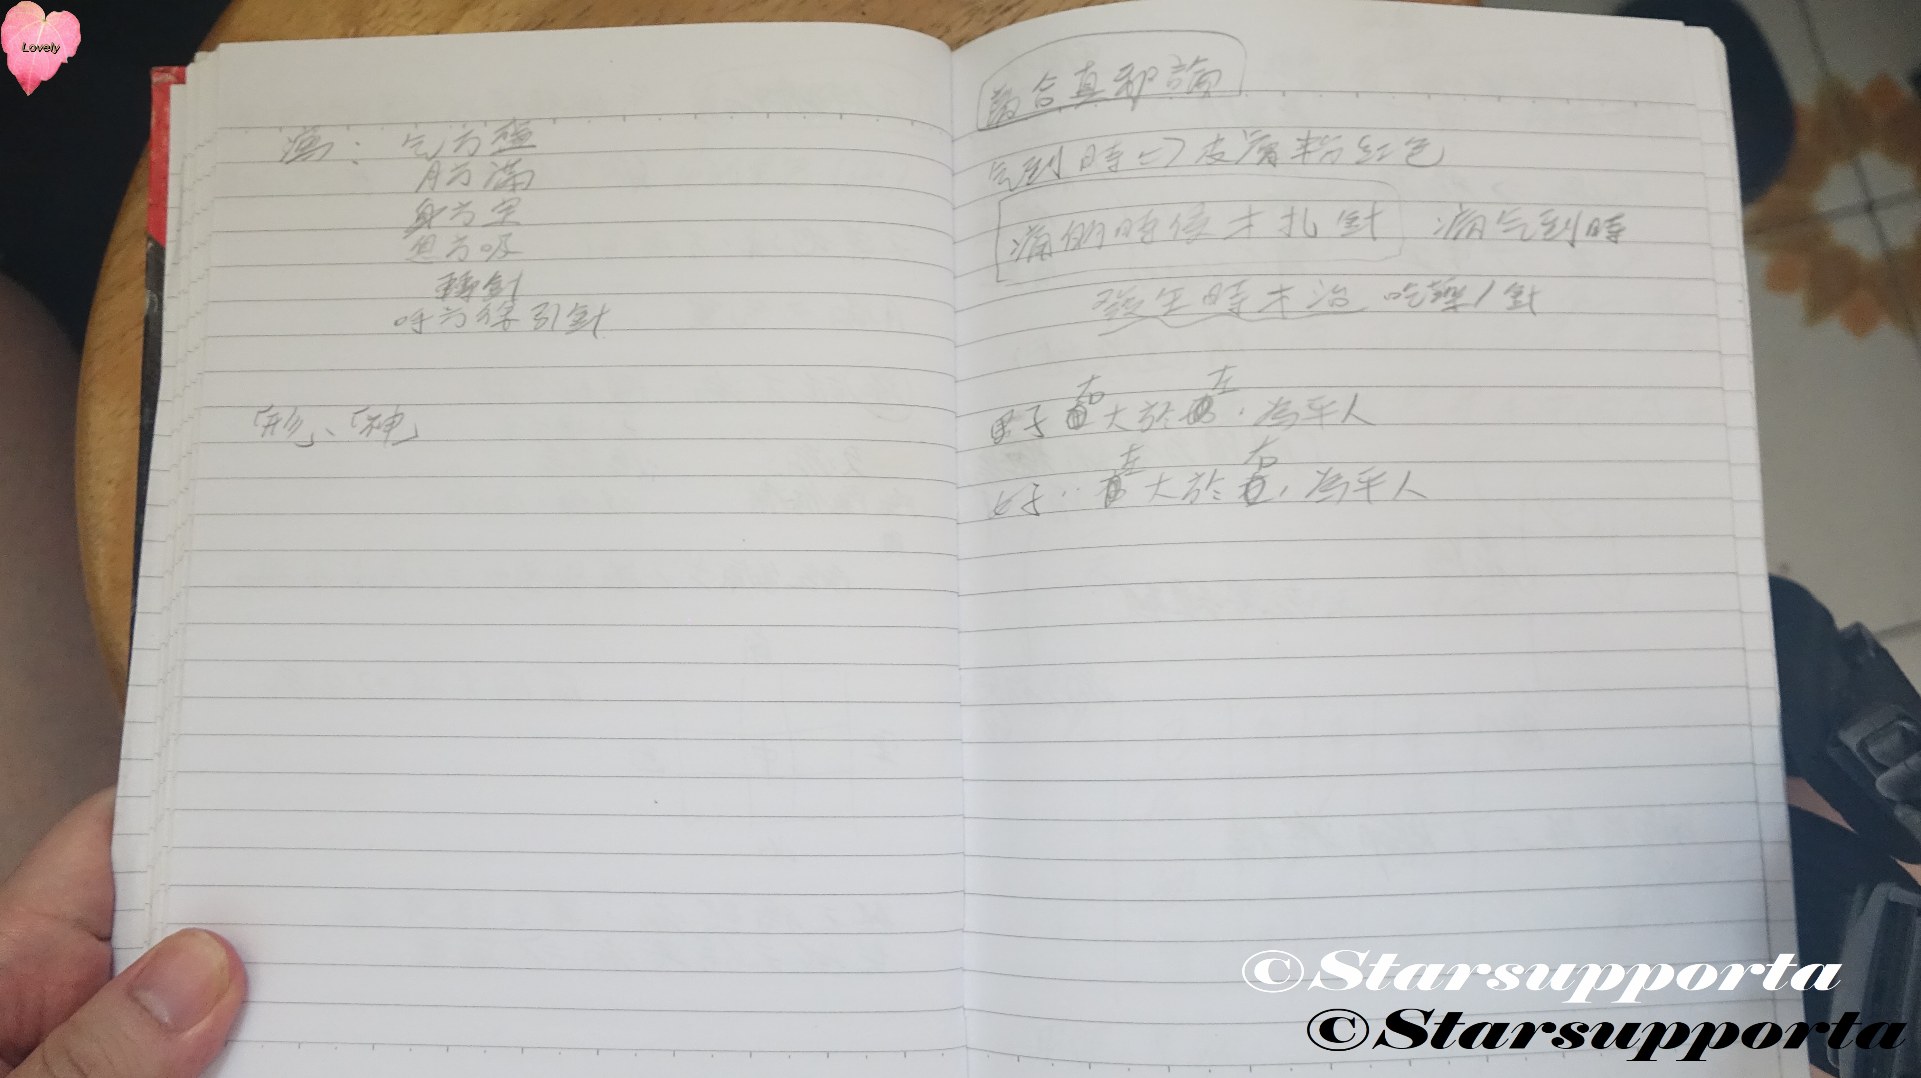 Lovely
瀉：气方盛
月方滿
身方定
息方吸
轉針
呼方徐引針
「形」、「神」
離合真邪論
气到時 皮膚粉紅色
痛的時候才扎針 病气到時
發生時才治 吃藥/針
男子右大於左，為平人
女子‥左大於右，為平人
©Starsupporta
©Starsupporta